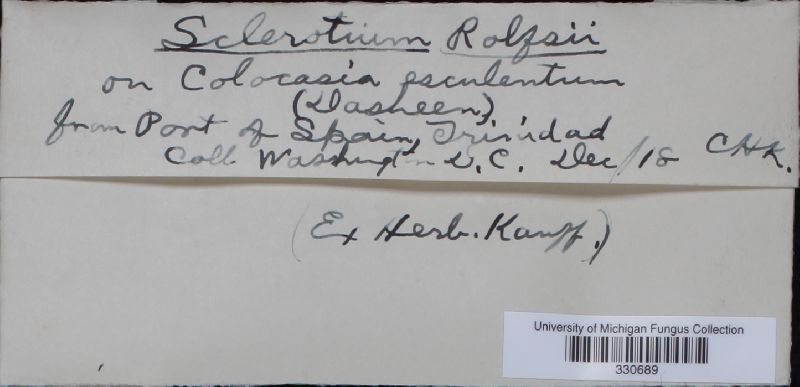 Sclerotium Rolfsii
on Colocasia esculentum
(Dasheen)
from Port of Spain, Trinidad
Coll. Washington D.C. Dec/18 CHK.
(Ex Herb. Kauff.)
University of Michigan Fungus Collection
330689